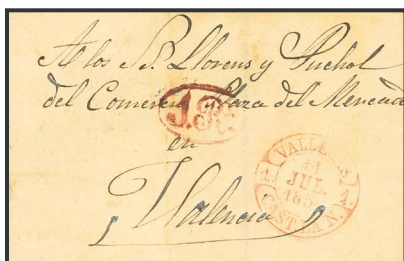 A los SS. Llorens y Puchol
del Comercio Plaza del Mercado
en
Valencia
JUL.
CASTELLON.